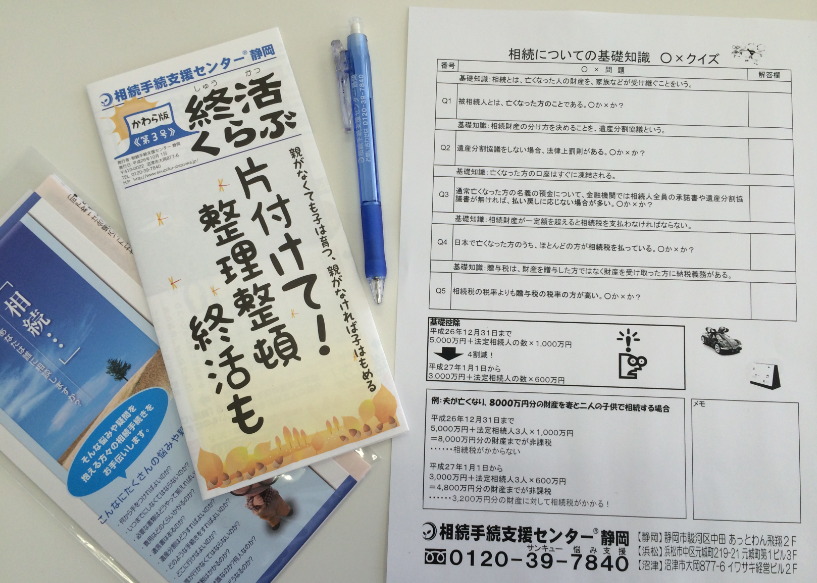 相続手続支援センター®静岡
しゅう かつ
終活
くらぶ
かわら版
《第3号》
親がなくても子は育つ、親がなければ子はもめる
片付けて!
整理整頓
終活も
「相続…」
そんな悩みや疑問を
抱える方々の相続手続きを
お手伝いします。
相続についての基礎知識 ○×クイズ
番号 ○×問題 解答欄
基礎知識:相続とは、亡くなった人の財産を、家族などが受け継ぐことをいう。
Q1 被相続人とは、亡くなった方のことである。○か×か?
基礎知識:相続財産の分け方を決めることを、遺産分割協議という。
Q2 遺産分割協議をしない場合、法律上罰則がある。○か×か?
基礎知識:亡くなった方の口座はすぐに凍結される。
Q3 通常亡くなった方の名義の預金について、金融機関では相続人全員の承諾書や遺産分割協
議書が無ければ、払い戻しに応じない場合が多い。○か×か?
基礎知識:相続財産が一定額を超えると相続税を支払わなければならない。
Q4 日本で亡くなった方のうち、ほとんどの方が相続税を払っている。○か×か?
基礎知識:贈与税は、財産を贈与した方ではなく財産を受け取った方に納税義務がある。
Q5 相続税の税率よりも贈与税の税率の方が高い。○か×か?
基礎控除
平成26年12月31日まで
5,000万円+法定相続人の数×1,000万円
4割減!
平成27年1月1日から
3,000万円+法定相続人の数×600万円
例:夫が亡くなり、8000万円分の財産を妻と二人の子供で相続する場合
平成26年12月31日まで
5,000万円+法定相続人3人×1,000万円
=8,000万円分の財産までが非課税
……相続税がかからない
平成27年1月1日から
3,000万円+法定相続人3人×600万円
=4,800万円分の財産までが非課税
……3,200万円分の財産に対して相続税がかかる!
メモ
相続手続支援センター®静岡
サンキュー 悩み 支援
0120-39-7840
【静岡】静岡市駿河区中田 あっとわん飛翔2F
【浜松】浜松市中区元城町219-21 元城町第1ビル3F
【沼津】沼津市大岡877-6 イワサキ経営ビル2F